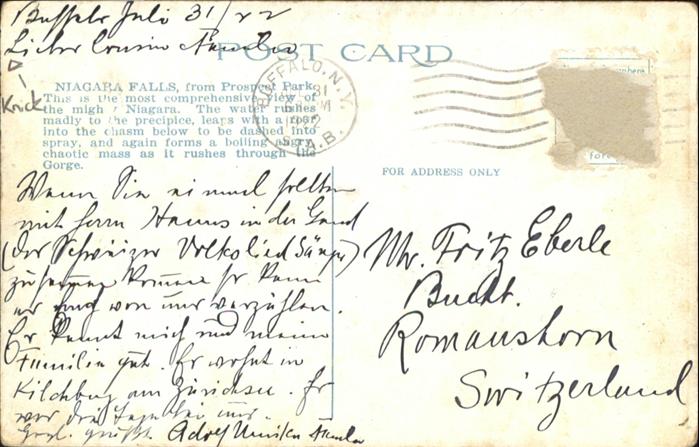 Buffalo Juli 31/22
Lieber Cousin
POST CARD
Krick
BUFFALO, N.Y.
STA. B.
NIAGARA FALLS, from Prospect Park.
This is the most comprehensive view of
the mighty Niagara. The water rushes
madly to the precipice, leaps with a roar
into the chasm below to be dashed into
spray, and again forms a boiling angry
chaotic mass as it rushes through the
Gorge.
FOR ADDRESS ONLY
Wenn Sie einmal sollten
mit Herrn Hanns in der Gand
(der Schweizer Volkslied Sänger)
zusammen kommen so kann
er auch von uns verzählen.
Er kennt mich und meine
Familie gut. Er wohnt in
Kilchberg am Zürichsee. Er
war drei Tage bei uns.
grüsst Adolf
Mr. Fritz Eberle
Bucht.
Romanshorn
Switzerland